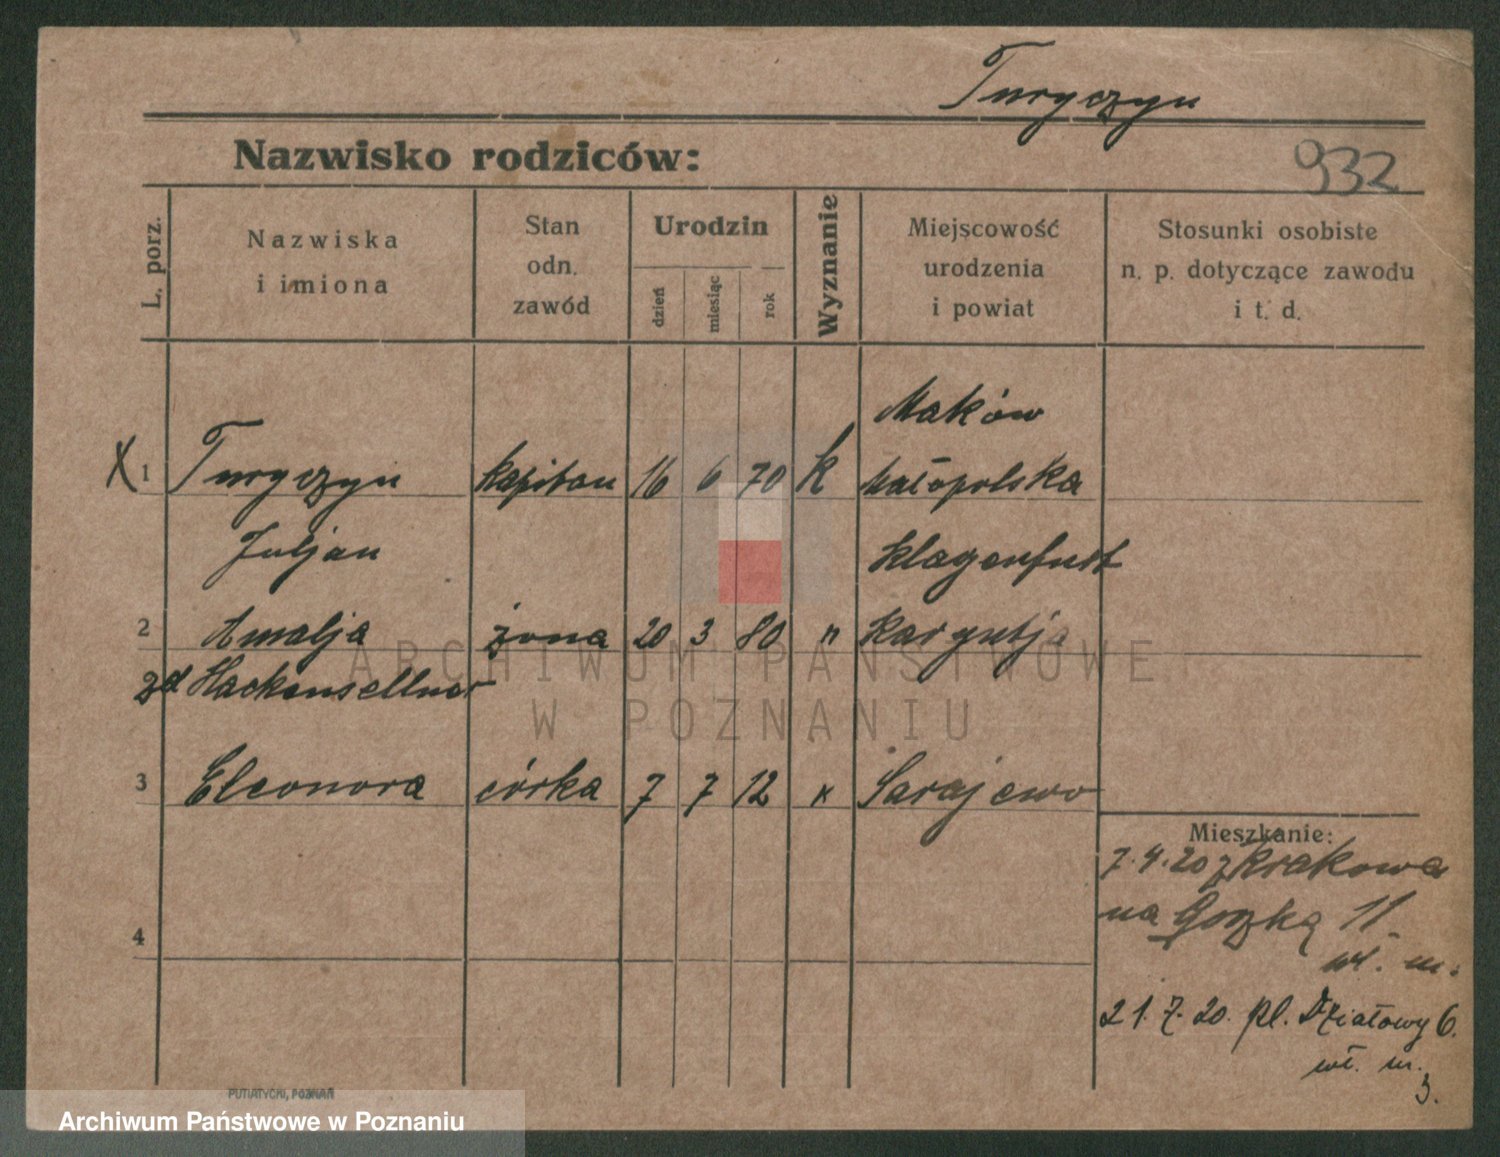 Turyczyn
Nazwisko rodziców:
932
L. porz.
Nazwiska
i imiona
Stan
odn.
zawód
Urodzin
dzień
miesiąc
rok
Wyznanie
Miejscowość
urodzenia
i powiat
Stosunki osobiste
n. p. dotyczące zawodu
i t. d.
Maków
X 1 Turyczyn kapitan 16 6 70 k Małopolska
Juljan Klagenfurt
2 Amalja żona 20 3 80 " Karyntja
zd Hackensellner
3 Eleonora córka 7 7 12 " Sarajewo
Mieszkanie:
7.4.20 z Krakowa
na Gorzką 11
wł. m.
4
21.7.20. pl. Działowy 6.
wł. m.
3.
PUTIATYCKI, POZNAŃ
ARCHIWUM PAŃSTWOWE
W POZNANIU
Archiwum Państwowe w Poznaniu